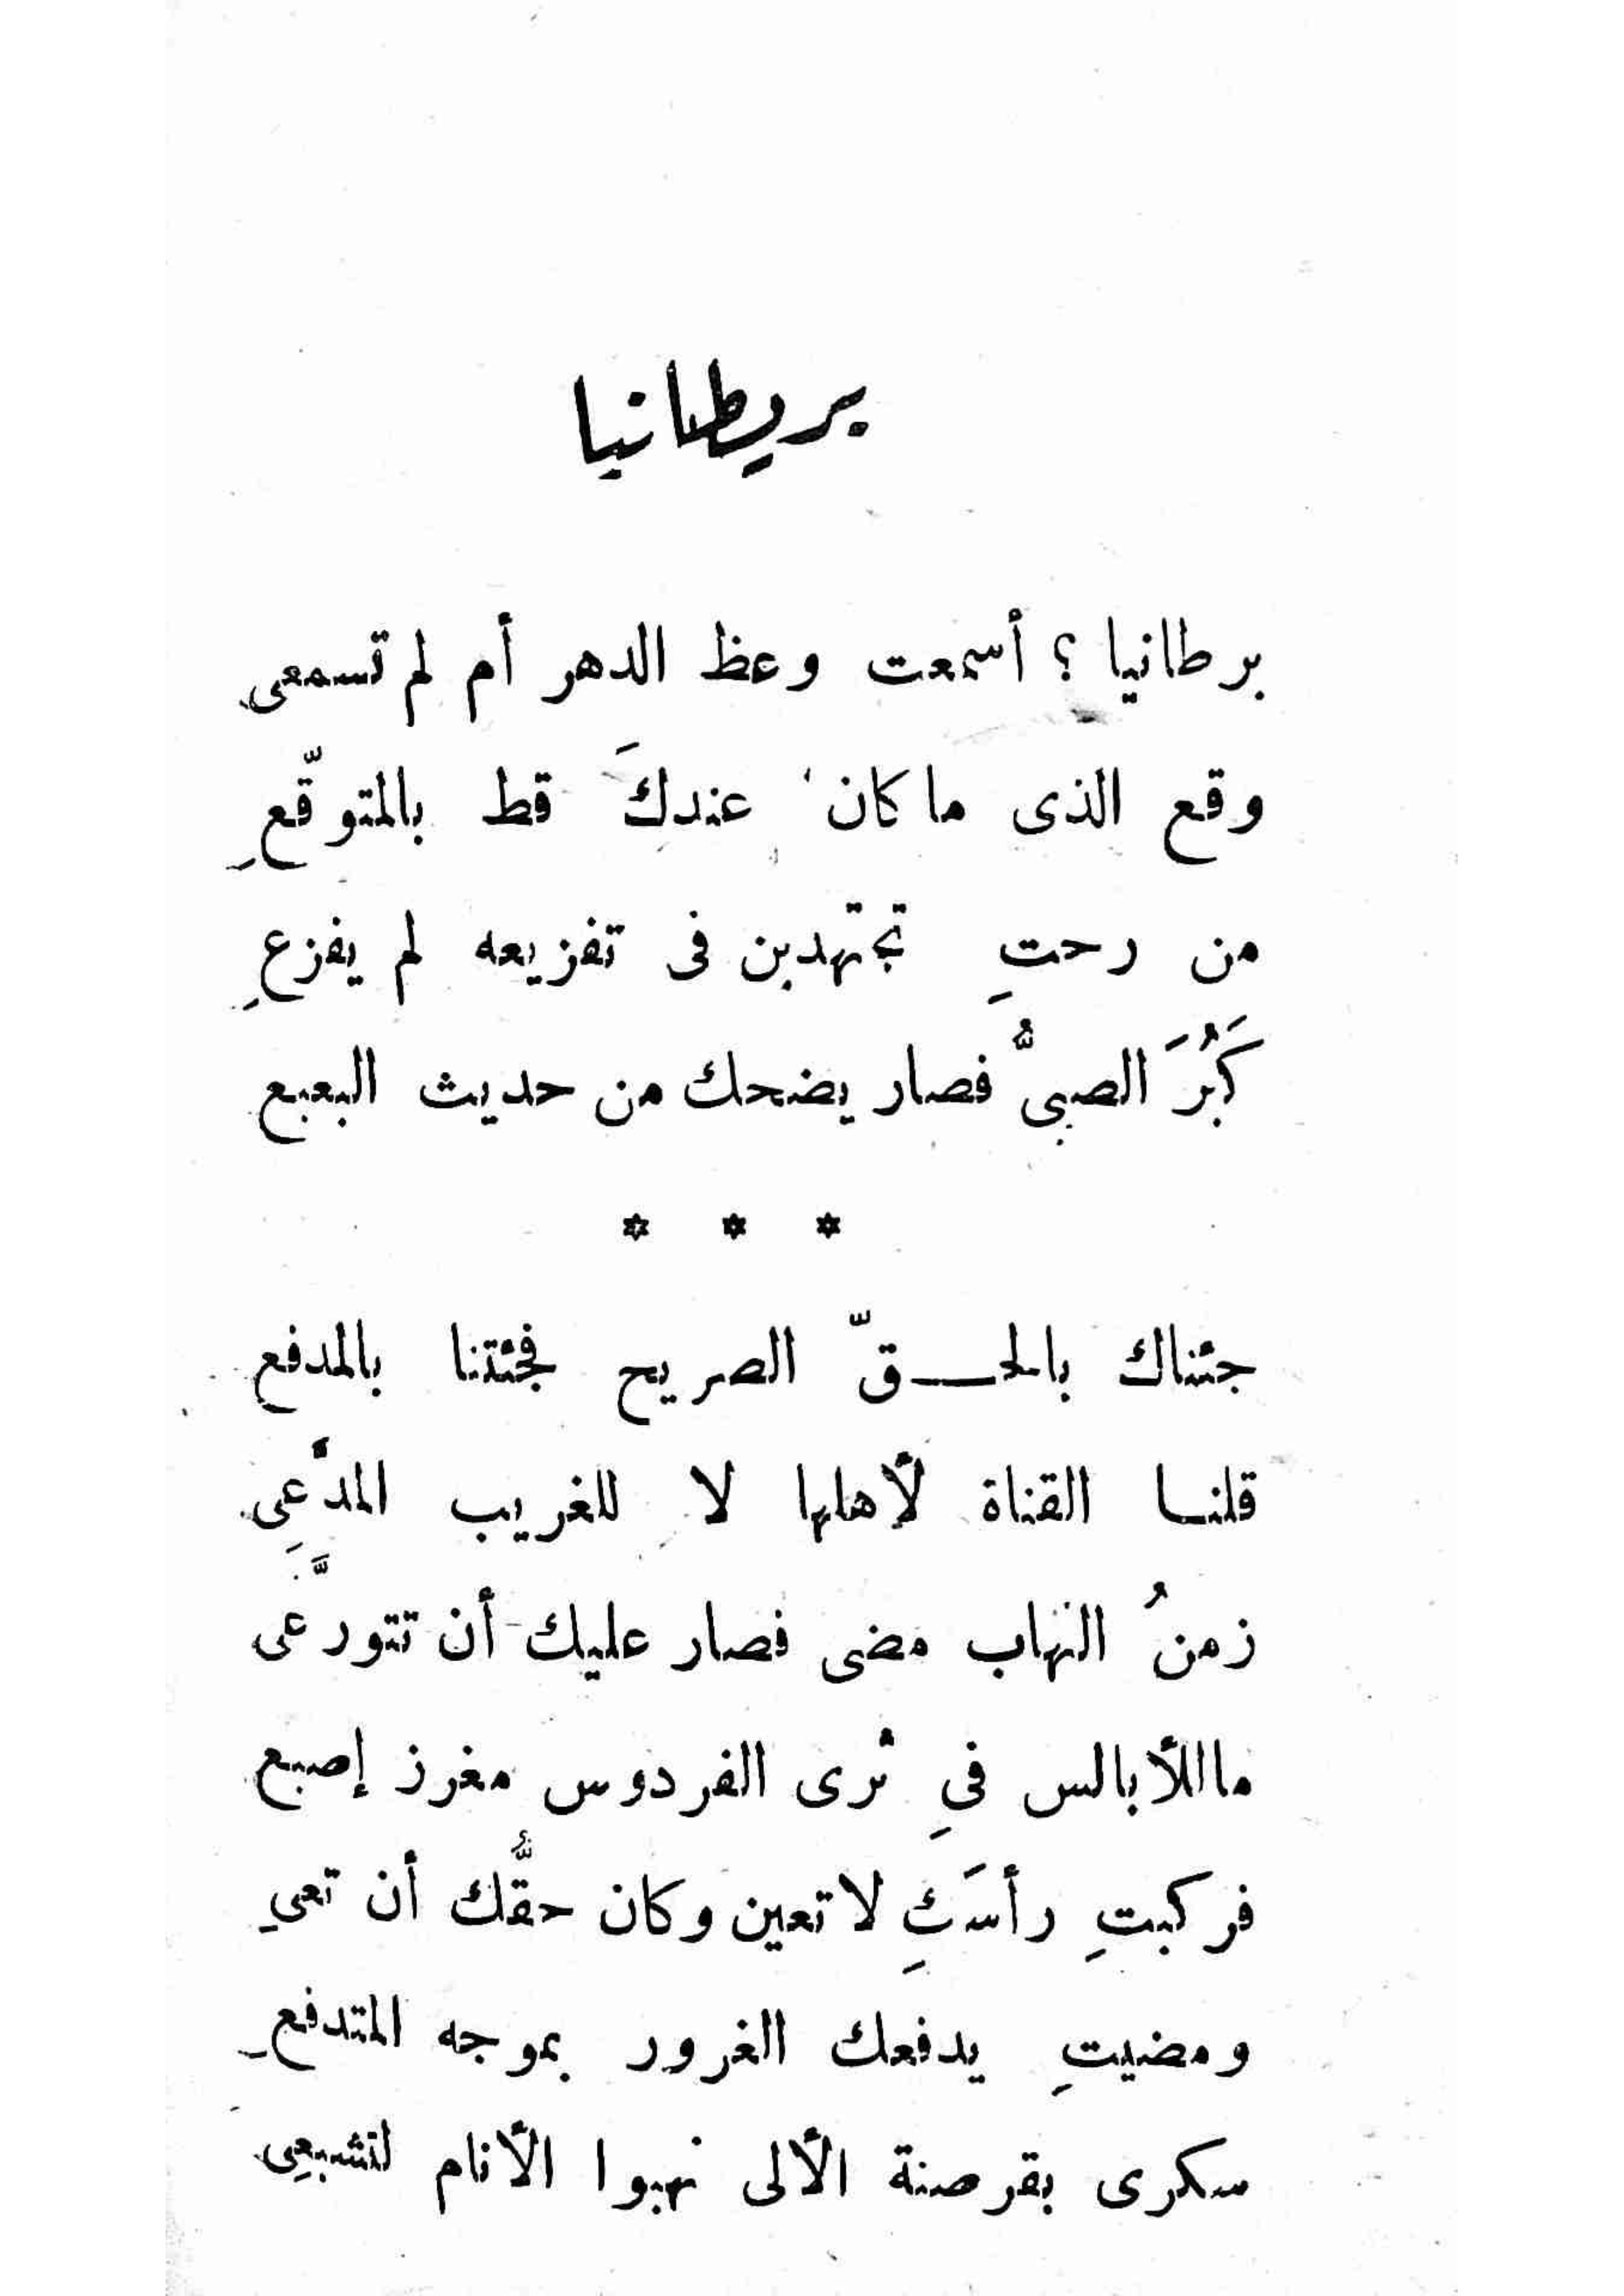 بريطانيا
برطانيا ؟ أسمعت وعظ الدهر أم لم تسمعى
وقع الذى ما كان عندكَ قط بالمتوقّعِ
من رحتِ تجتهدين فى تفزيعه لم يفزعِ
كَبُرَ الصبىُّ فصار يضحك من حديث البعبع
* * *
جئناك بالحــقّ الصريح فجئتنا بالمدفع
قلنــا القناة لأهلها لا للغريب المدَّعِى
زمنُ النهاب مضى فصار عليك أن تتورَّعى
ما اللأبالس فىِ ثرى الفردوس مغرز إصبع
فركبتِ رأسَكِ لا تعين وكان حقُّك أن تعىِ
ومضيتِ يدفعك الغرور بموجه المتدفعِ
سكرى بقرصنة الألى نهبوا الأنام لتشبعِى